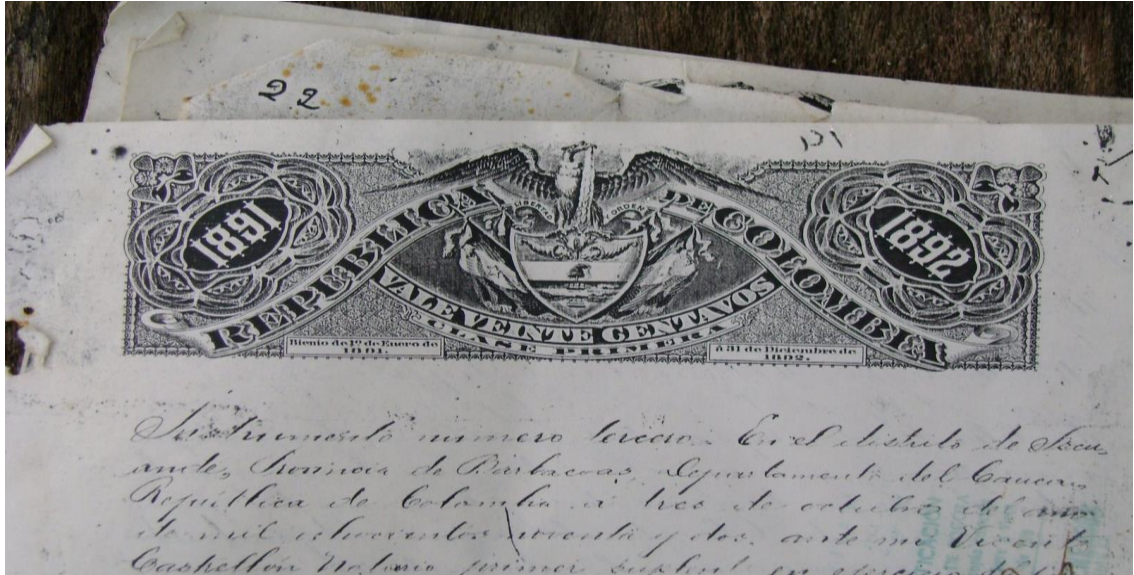 22
1891
1892
LIBERTAD
ORDEN
REPUBLICA DE COLOMBIA
VALE VEINTE CENTAVOS
CLASE PRIMERA
Bienio de 1º de Enero de
1891.
á 31 de Diciembre de
1892.
Instrumento numero tercero. En el distrito de Iscu
ande, Provincia de Barbacoas, Departamento del Cauca,
República de Colombia a tres de octubre del año
de mil ochocientos noventa y dos, ante mi Vicente
Castellón Notario primer suplente en ejercicio del